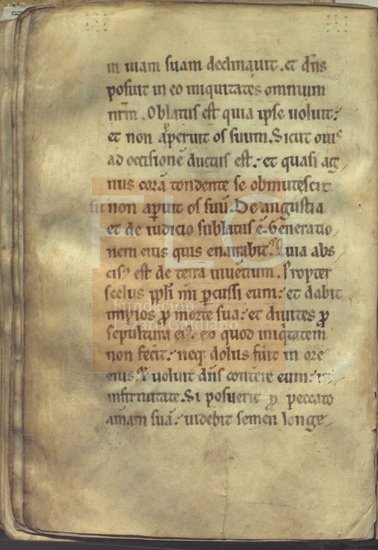 in uiam suam declinauit. et dñs
posuit in eo iniquitates omnium
nr̄m. Oblatus est quia ipse uoluit:
et non aperuit os suum. Sicut ouis
ad occisionē ductus est: et quasi ag
nus corā tondente se obmutescit
sic non aperuit os suū. De angustia
et de iudicio sublatus ē. Generatio
nem eius quis enarrabit: Quia abs
cis' est de terra uiuentium. Propter
scelus ip̄li mī percussi eum: et dabit
impios ꝓ morte sua: et diuites ꝓ
sepultura ei'. eo quod iniqtatem
non fecit: neq; dolus fuit in ore
eius. & uoluit dn̄s conterere eum: in
infirmitate. Si posuerit ꝓ peccato
animam suā: uidebit semen longe
Fundación
Lázaro Galdiano